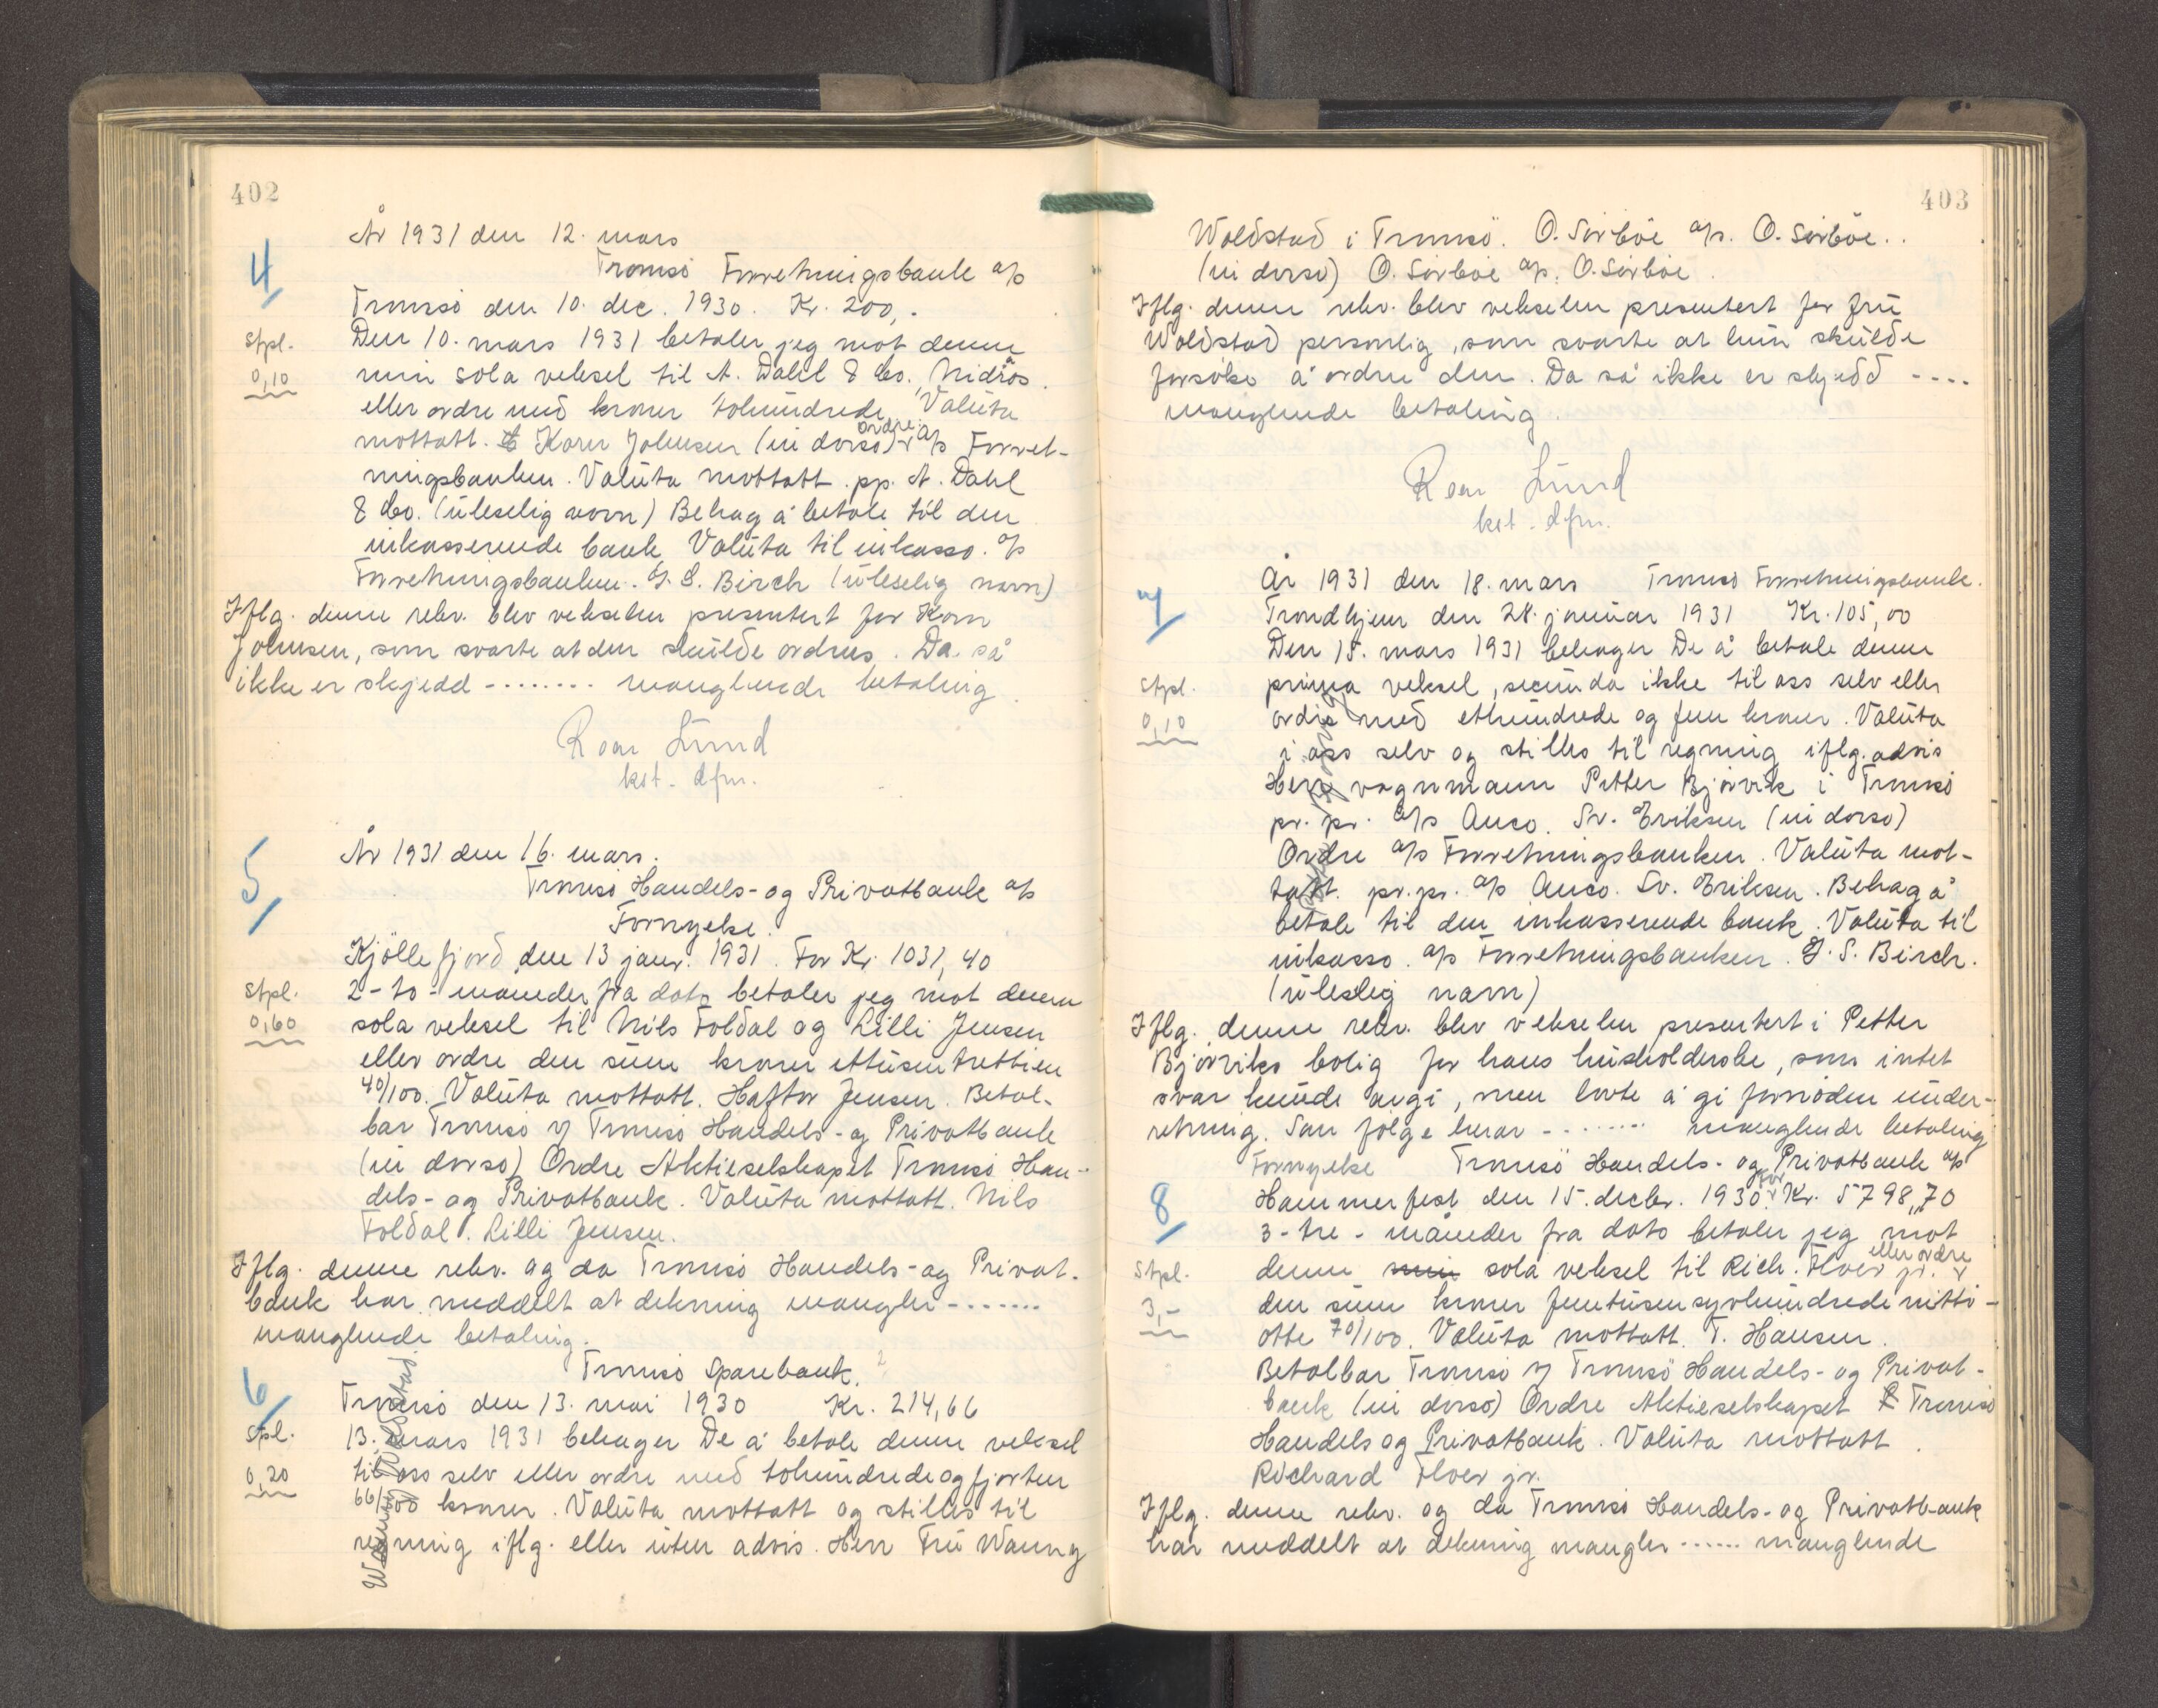 402
År 1931 den 12. mars
4
Tromsö Forretningsbank a/s
Tromsö den 10. dec. 1930. Kr. 200,-
Stpl.
0,10
Den 10. mars 1931 betaler jeg mot denne
min sola veksel til A. Dahl & Co., Nidrås.
eller ordre med kroner tohundrede. Valuta
mottatt. Karen Johnsen (in dorso) Ordre a/s Forret-
ningsbanken. Valuta mottatt. pp. A. Dahl
& Co. (uleselig navn) Behag å betale til den
inkasserende bank Valuta til inkasso. a/s
Forretningsbanken. J. S. Birch (uleselig navn)
Iflg. denne rekv. blev vekselen presentert for Karen
Johnsen, som svarte at den skulde ordnes. Da så
ikke er skjedd -------- manglende betaling.
Roar Lund
kst. dfm.
5
År 1931 den 16. mars.
Tromsö Handels- og Privatbank a/s
Fornyelse.
Kjöllefjord den 13 janr. 1931. For Kr. 1031,40
Stpl.
0,60
2-to- maaneder fra dato betaler jeg mot denne
sola veksel til Nils Foldal og Lilli Jensen
eller ordre den sum kroner ettusentrettien
40/100. Valuta mottatt. Haftor Jensen. Betal-
bar Tromsö i/ Tromsö Handels- og Privatbank
(in dorso) Ordre Aktieselskapet Tromsö Han-
dels- og Privatbank. Valuta mottatt. Nils
Foldal. Lilli Jensen.
Iflg. denne rekv. og da Tromsö Handels- og Privat-
bank har meddelt at dekning mangler -------
manglende betaling.
6
Tromsö Sparebank.
Tromsö den 13. mai 1930 Kr. 214,66
Stpl.
0,20
13. mars 1931 behager De å betale denne veksel
til oss selv eller ordre med tohundredeogfjorten
66/100 kroner. Valuta mottatt og stilles til
regning iflg. eller uten advis. Herr Fru Wanny
Wanny Woldstad
403
Woldstad i Tromsö. O. Sörböe a/s. O. Sörböe..
(in dorso) O. Sörböe a/s. O. Sörböe.
Iflg. denne rekv. blev vekselen presentert for fru
Woldstad personlig, som svarte at hun skulde
forsöke å ordne den. Da så ikke er skjedd ----
manglende betaling.
Roar Lund
kst. dfm.
7
År 1931 den 18. mars Tromsö Forretningsbank.
Trondhjem den 28. januar 1931 Kr. 105,00
Den 15. mars 1931 behager De å betale denne
Stpl.
0,10
prima veksel, secunda ikke til oss selv eller
ordre med ethundrede og fem kroner. Valuta
i oss selv og stilles til regning iflg. advis
Herr vognmann Petter Bjørvik i Tromsö
pr. pr. a/s Auco. Sv. Eriksen (in dorso)
Ordre a/s Forretningsbanken. Valuta mot-
tatt. pr. pr. a/s Auco. Sv. Eriksen. Behag å
betale til den inkasserende bank. Valuta til
inkasso. a/s Forretningsbanken. J. S. Birch.
(uleslig navn)
Iflg. denne rekv. blev vekselen presentert i Petter
Bjørviks bolig for hans husholderske, som intet
svar kunde avgi, men lovte å gi fornøden under-
retning. Som følge herav -------- manglende betaling
8
Fornyelse Tromsö Handels- og Privatbank a/s
Hammerfest den 15. decbr. 1930. for Kr. 5798,70
3-tre- måneder fra dato betaler jeg mot
Stpl.
3,-
denne min sola veksel til Rich. Floer jr. eller ordre
den sum kroner femtusensyvhundredenitti-
otte 70/100. Valuta mottatt. T. Hansen.
Betalbar Tromsö i/ Tromsö Handels- og Privat-
bank (in dorso) Ordre Aktieselskapet Tromsö
Handels og Privatbank. Valuta mottatt.
Richard Floer jr.
Iflg. denne rekv. og da Tromsö Handels- og Privatbank
har meddelt at dekning mangler ------ manglende